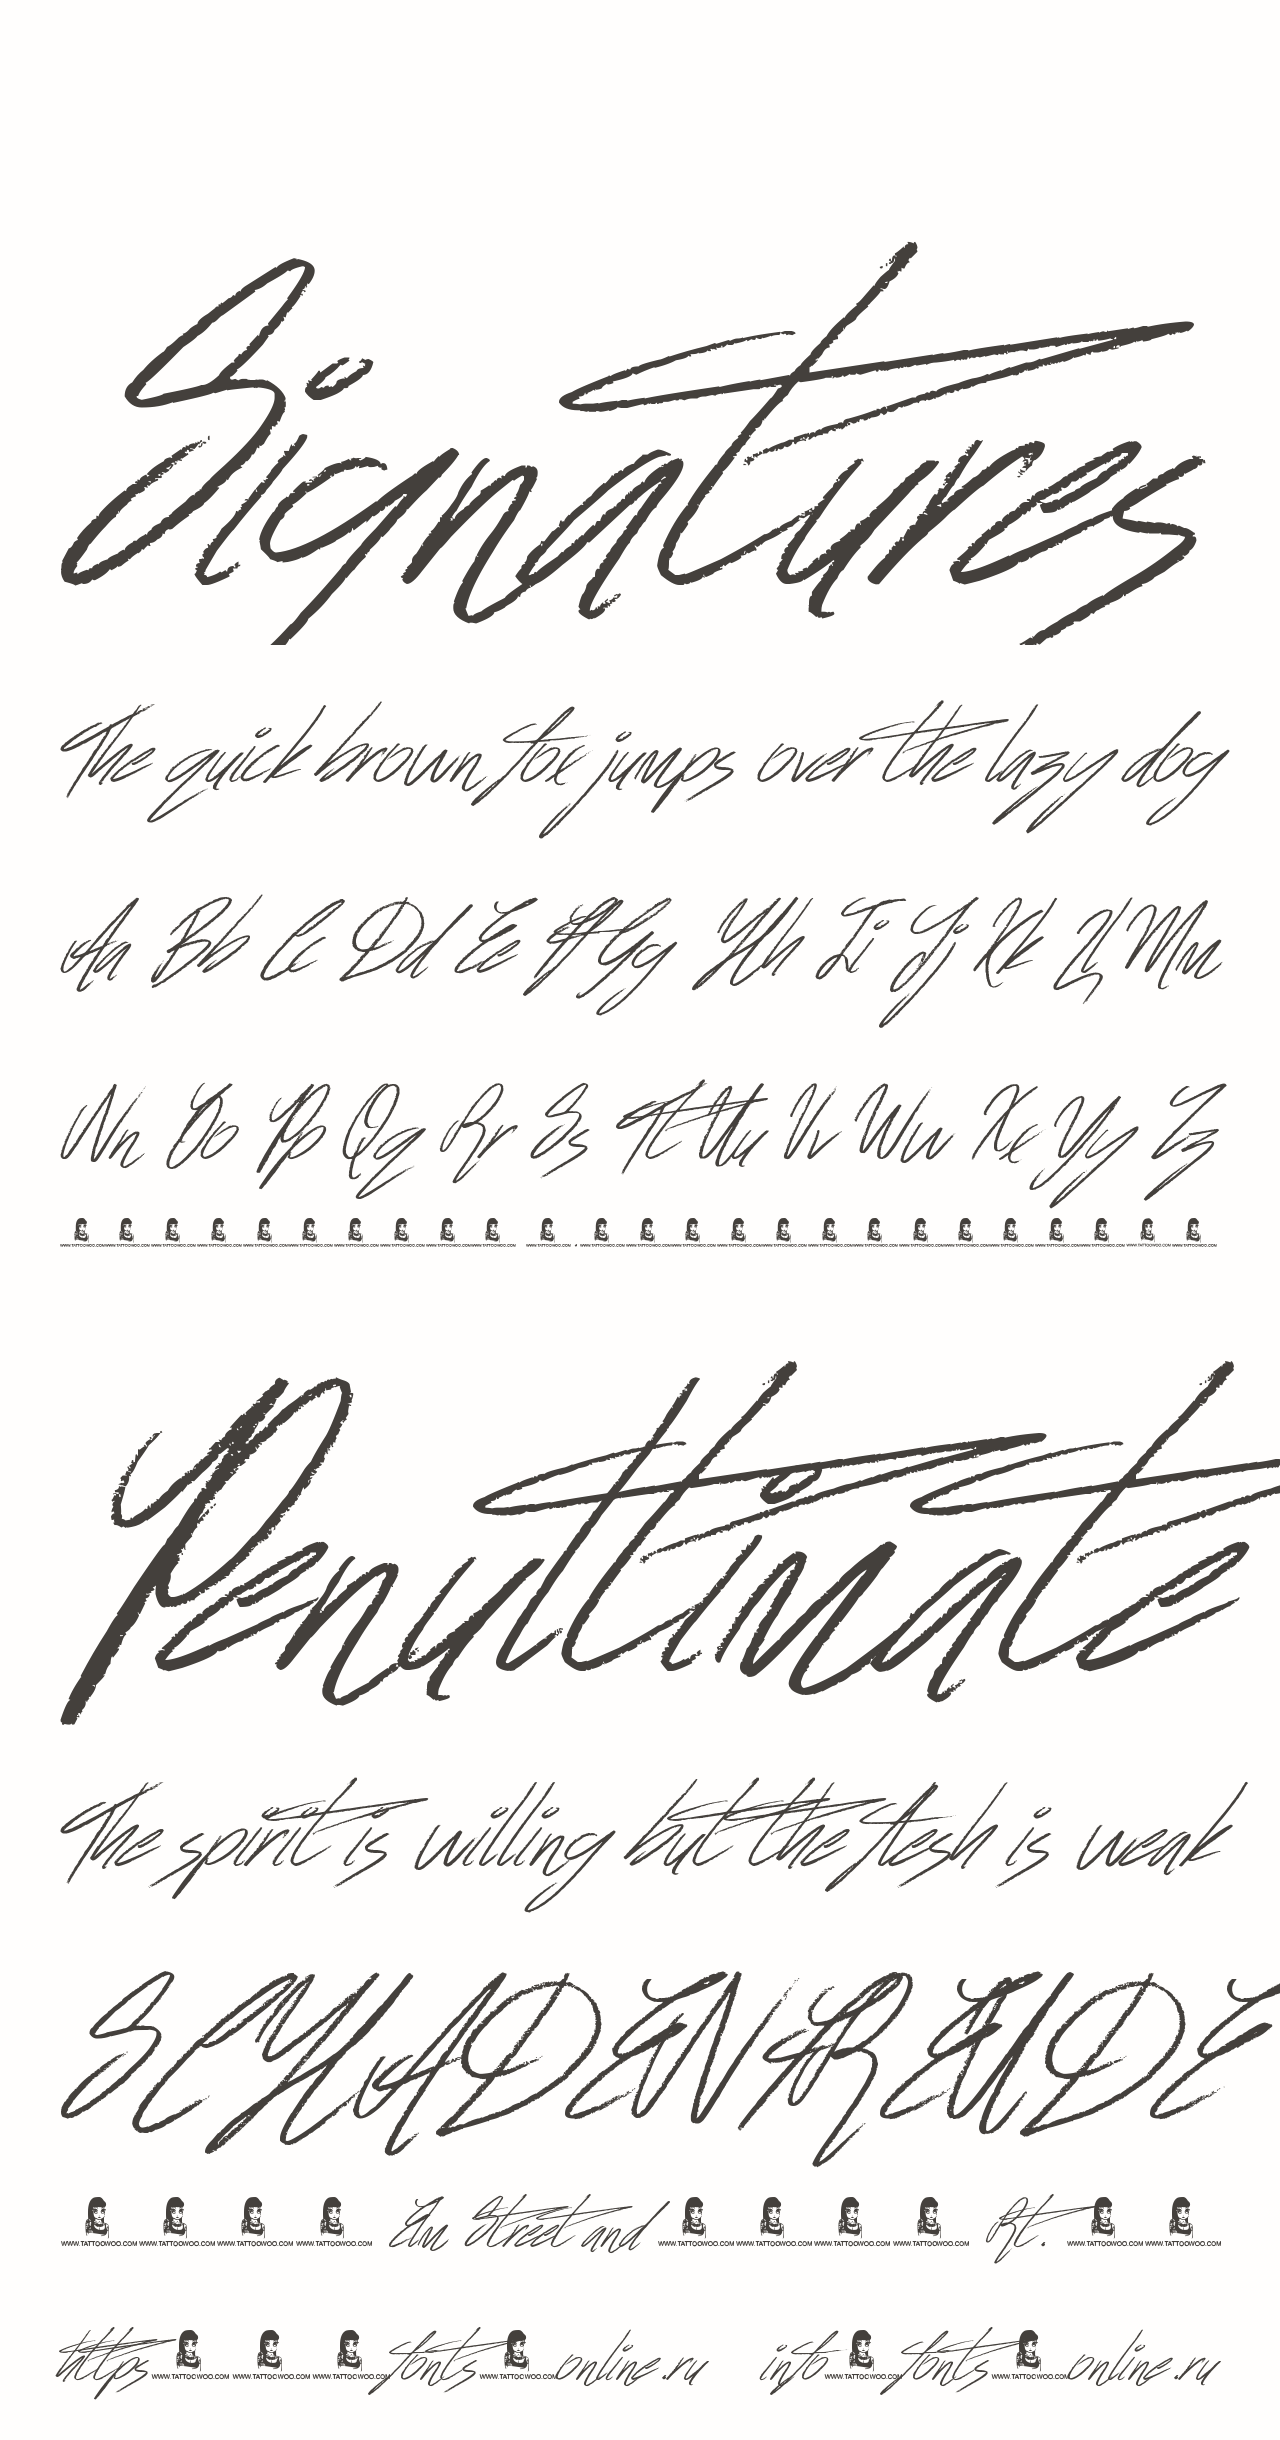 Signatures
The quick brown fox jumps over the lazy dog
Aa Bb Cc Dd Ee Ff Gg Hh Ii Jj Kk Ll Mm
Nn Oo Pp Qq Rr Ss Tt Uu Vv Ww Xx Yy Zz
WWW.TATTOOWOO.COM WWW.TATTOOWOO.COM WWW.TATTOOWOO.COM WWW.TATTOOWOO.COM WWW.TATTOOWOO.COM WWW.TATTOOWOO.COM WWW.TATTOOWOO.COM WWW.TATTOOWOO.COM WWW.TATTOOWOO.COM WWW.TATTOOWOO.COM WWW.TATTOOWOO.COM . WWW.TATTOOWOO.COM WWW.TATTOOWOO.COM WWW.TATTOOWOO.COM WWW.TATTOOWOO.COM WWW.TATTOOWOO.COM WWW.TATTOOWOO.COM WWW.TATTOOWOO.COM WWW.TATTOOWOO.COM WWW.TATTOOWOO.COM WWW.TATTOOWOO.COM WWW.TATTOOWOO.COM WWW.TATTOOWOO.COM WWW.TATTOOWOO.COM WWW.TATTOOWOO.COM
Penultimate
The spirit is willing but the flesh is weak
SCHADENFREUDE
WWW.TATTOOWOO.COM WWW.TATTOOWOO.COM WWW.TATTOOWOO.COM WWW.TATTOOWOO.COM Elm Street and WWW.TATTOOWOO.COM WWW.TATTOOWOO.COM WWW.TATTOOWOO.COM WWW.TATTOOWOO.COM Rt. WWW.TATTOOWOO.COM WWW.TATTOOWOO.COM
https WWW.TATTOOWOO.COM WWW.TATTOOWOO.COM WWW.TATTOOWOO.COM fonts WWW.TATTOOWOO.COM online.ru info WWW.TATTOOWOO.COM fonts WWW.TATTOOWOO.COM online.ru